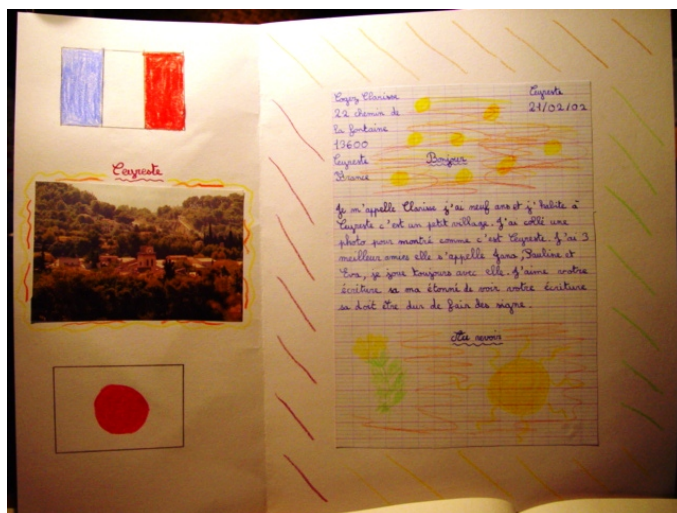 Ceyreste
Clarisse
Ceyreste
22 chemin de
21/02/02
la fontaine
13600
Ceyreste
Bonjour
France
Je m'appelle Clarisse j'ai neuf ans et j'habite à
Ceyreste c'est un petit village. J'ai collé une
photo pour montré comme c'est Ceyreste. J'ai 3
meilleur amies elle s'appelle Jana, Pauline et
Eva, je joue toujours avec elle. J'aime votre
écriture sa ma étonné de voir votre écriture
sa doit être dur de fair des signe.
Au revoir